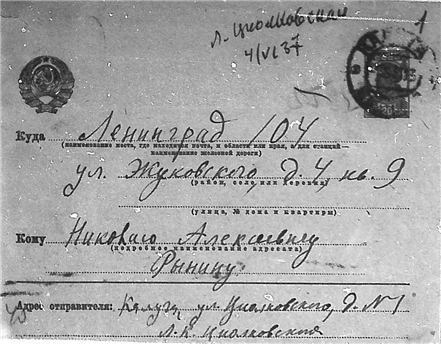 Л. Циолковская
1
4/VI 37
Куда Ленинград 104
(наименование места, где находится почта, и области или края, а для станций—
наименование железной дороги)
ул. Жуковского д. 4, кв. 9
(район, село или деревня)
(улица, № дома и квартиры)
Кому Николаю Алексеевичу
(подробное наименование адресата)
Рынину
Адрес отправителя: Калуга, ул. Циолковского, д. №1
Л.К. Циолковская